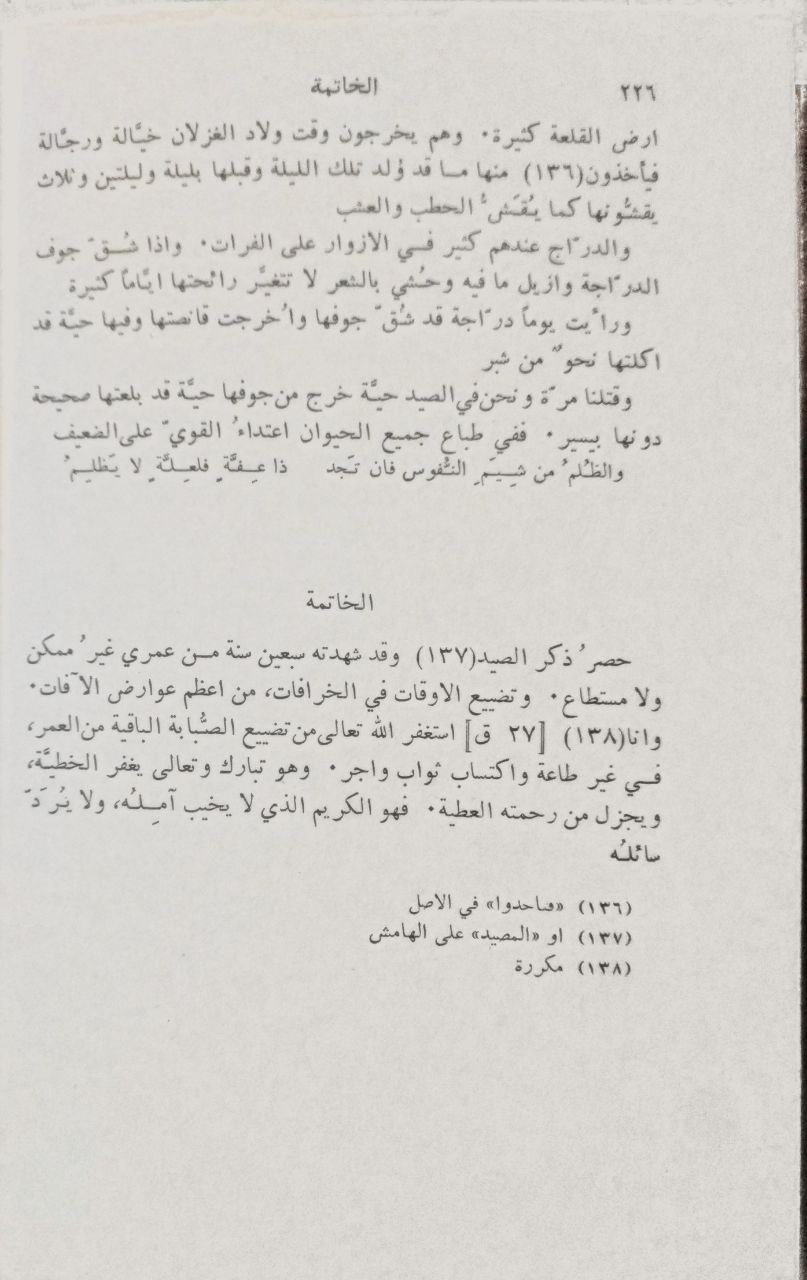 ٢٢٦ الخاتمة
ارض القلعة كثيرة. وهم يخرجون وقت ولاد الغزلان خيَّالة ورجَّالة
فيأخذون(١٣٦) منها مـا قد وُلد تلك الليلة وقبلها بليلة وليلتين وثلاث
يقشُّونها كما يُقَشُّ الحطب والعشب
والدرّاج عندهم كثير فـي الازوار على الفرات. واذا شُـقّ جوف
الدرّاجة وازيل ما فيه وحُشي بالشعر لا تتغيَّر رائحتها ايَّاماً كثيرة
ورأيت يوماً درّاجة قد شُقّ جوفها وأُخرجت قانصتها وفيها حيَّة قد
اكلتها نحوٌ من شبر
وقتلنا مرّة ونحن في الصيد حيَّة خرج من جوفها حيَّة قد بلعتها صحيحة
دونها بيسير. ففي طباع جميع الحيوان اعتداءُ القويّ على الضعيف
والظُلمُ من شِيَمِ النُّفوس فان تَجد ذا عِـفَّةٍ فلعِـلَّةٍ لا يَظلِـمُ
الخاتمة
حصرُ ذكر الصيد(١٣٧) وقد شهدته سبعين سنة مـن عمري غيرُ ممكن
ولا مستطاع. وتضييع الاوقات في الخرافات، من اعظم عوارض الآفات.
وانا(١٣٨) [٢٧ ق] استغفر الله تعالى من تضييع الصُّبابة الباقية من العمر،
فـي غير طاعة واكتساب ثواب واجر. وهو تبارك وتعالى يغفر الخطيَّة،
ويجزل من رحمته العطية. فهو الكريم الذي لا يخيب آمِـلُه، ولا يُرَدّ
سائلُه
(١٣٦) «فاحدوا» في الاصل
(١٣٧) او «المصيد» على الهامش
(١٣٨) مكررة